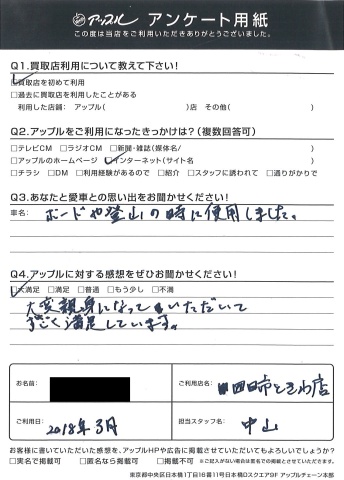 アップル アンケート用紙
この度は当店をご利用いただきありがとうございました。
Q1.買取店利用について教えて下さい!
□買取店を初めて利用
□過去に買取店を利用したことがある
利用した店舗: アップル( )店 その他( )
Q2.アップルをご利用になったきっかけは?(複数回答可)
□テレビCM □ラジオCM □新聞・雑誌(媒体名/ )
□アップルのホームページ □インターネット(サイト名 )
□チラシ □DM □利用経験があるので □紹介 □スタッフに誘われて □通りがかりで
Q3.あなたと愛車との思い出をお聞かせください!
車名: ボードや登山の時に使用しました。
Q4.アップルに対する感想をぜひお聞かせください!
□大満足 □満足 □普通 □もう少し □不満
大変親身になってもいただいて
すごく満足しています。
お名前:
ご利用店名: 四日市ときわ店
ご利用日: 2018年3月
担当スタッフ名: 中山
お客様に書いていただいた感想を、アップルHPや広告に掲載させていただいてもよろしいでしょうか?
□実名で掲載可 □匿名なら掲載可 □掲載不可 ※ご記入がない場合は匿名での掲載とさせていただきます。
東京都中央区日本橋1丁目16番11号日本橋Dスクエア9F アップルチェーン本部